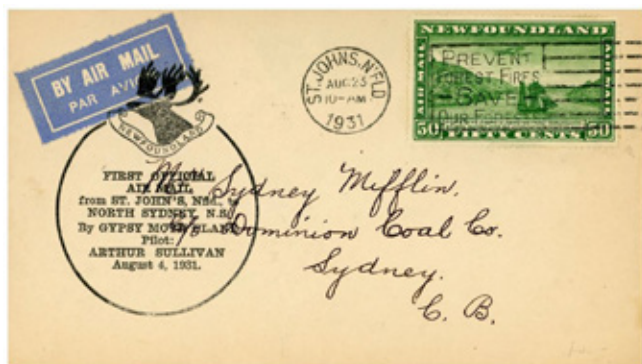 BY AIR MAIL
PAR AVION
NEWFOUNDLAND
FIRST OFFICIAL
AIR MAIL
from ST. JOHN'S, Nfld., to
NORTH SYDNEY, N.S.
By GYPSY MOTH PLANE
Pilot:
ARTHUR SULLIVAN
August 4, 1931.
ST. JOHNS, N'FLD
AUG 25
10-AM
1931
NEWFOUNDLAND
AIR MAIL
AIR MAIL
PREVENT
FOREST FIRES
SAVE
OUR FORESTS
50 FIFTY CENTS 50
Mr. Sydney Mifflin.
c/o Dominion Coal Co.
Sydney.
C. B.